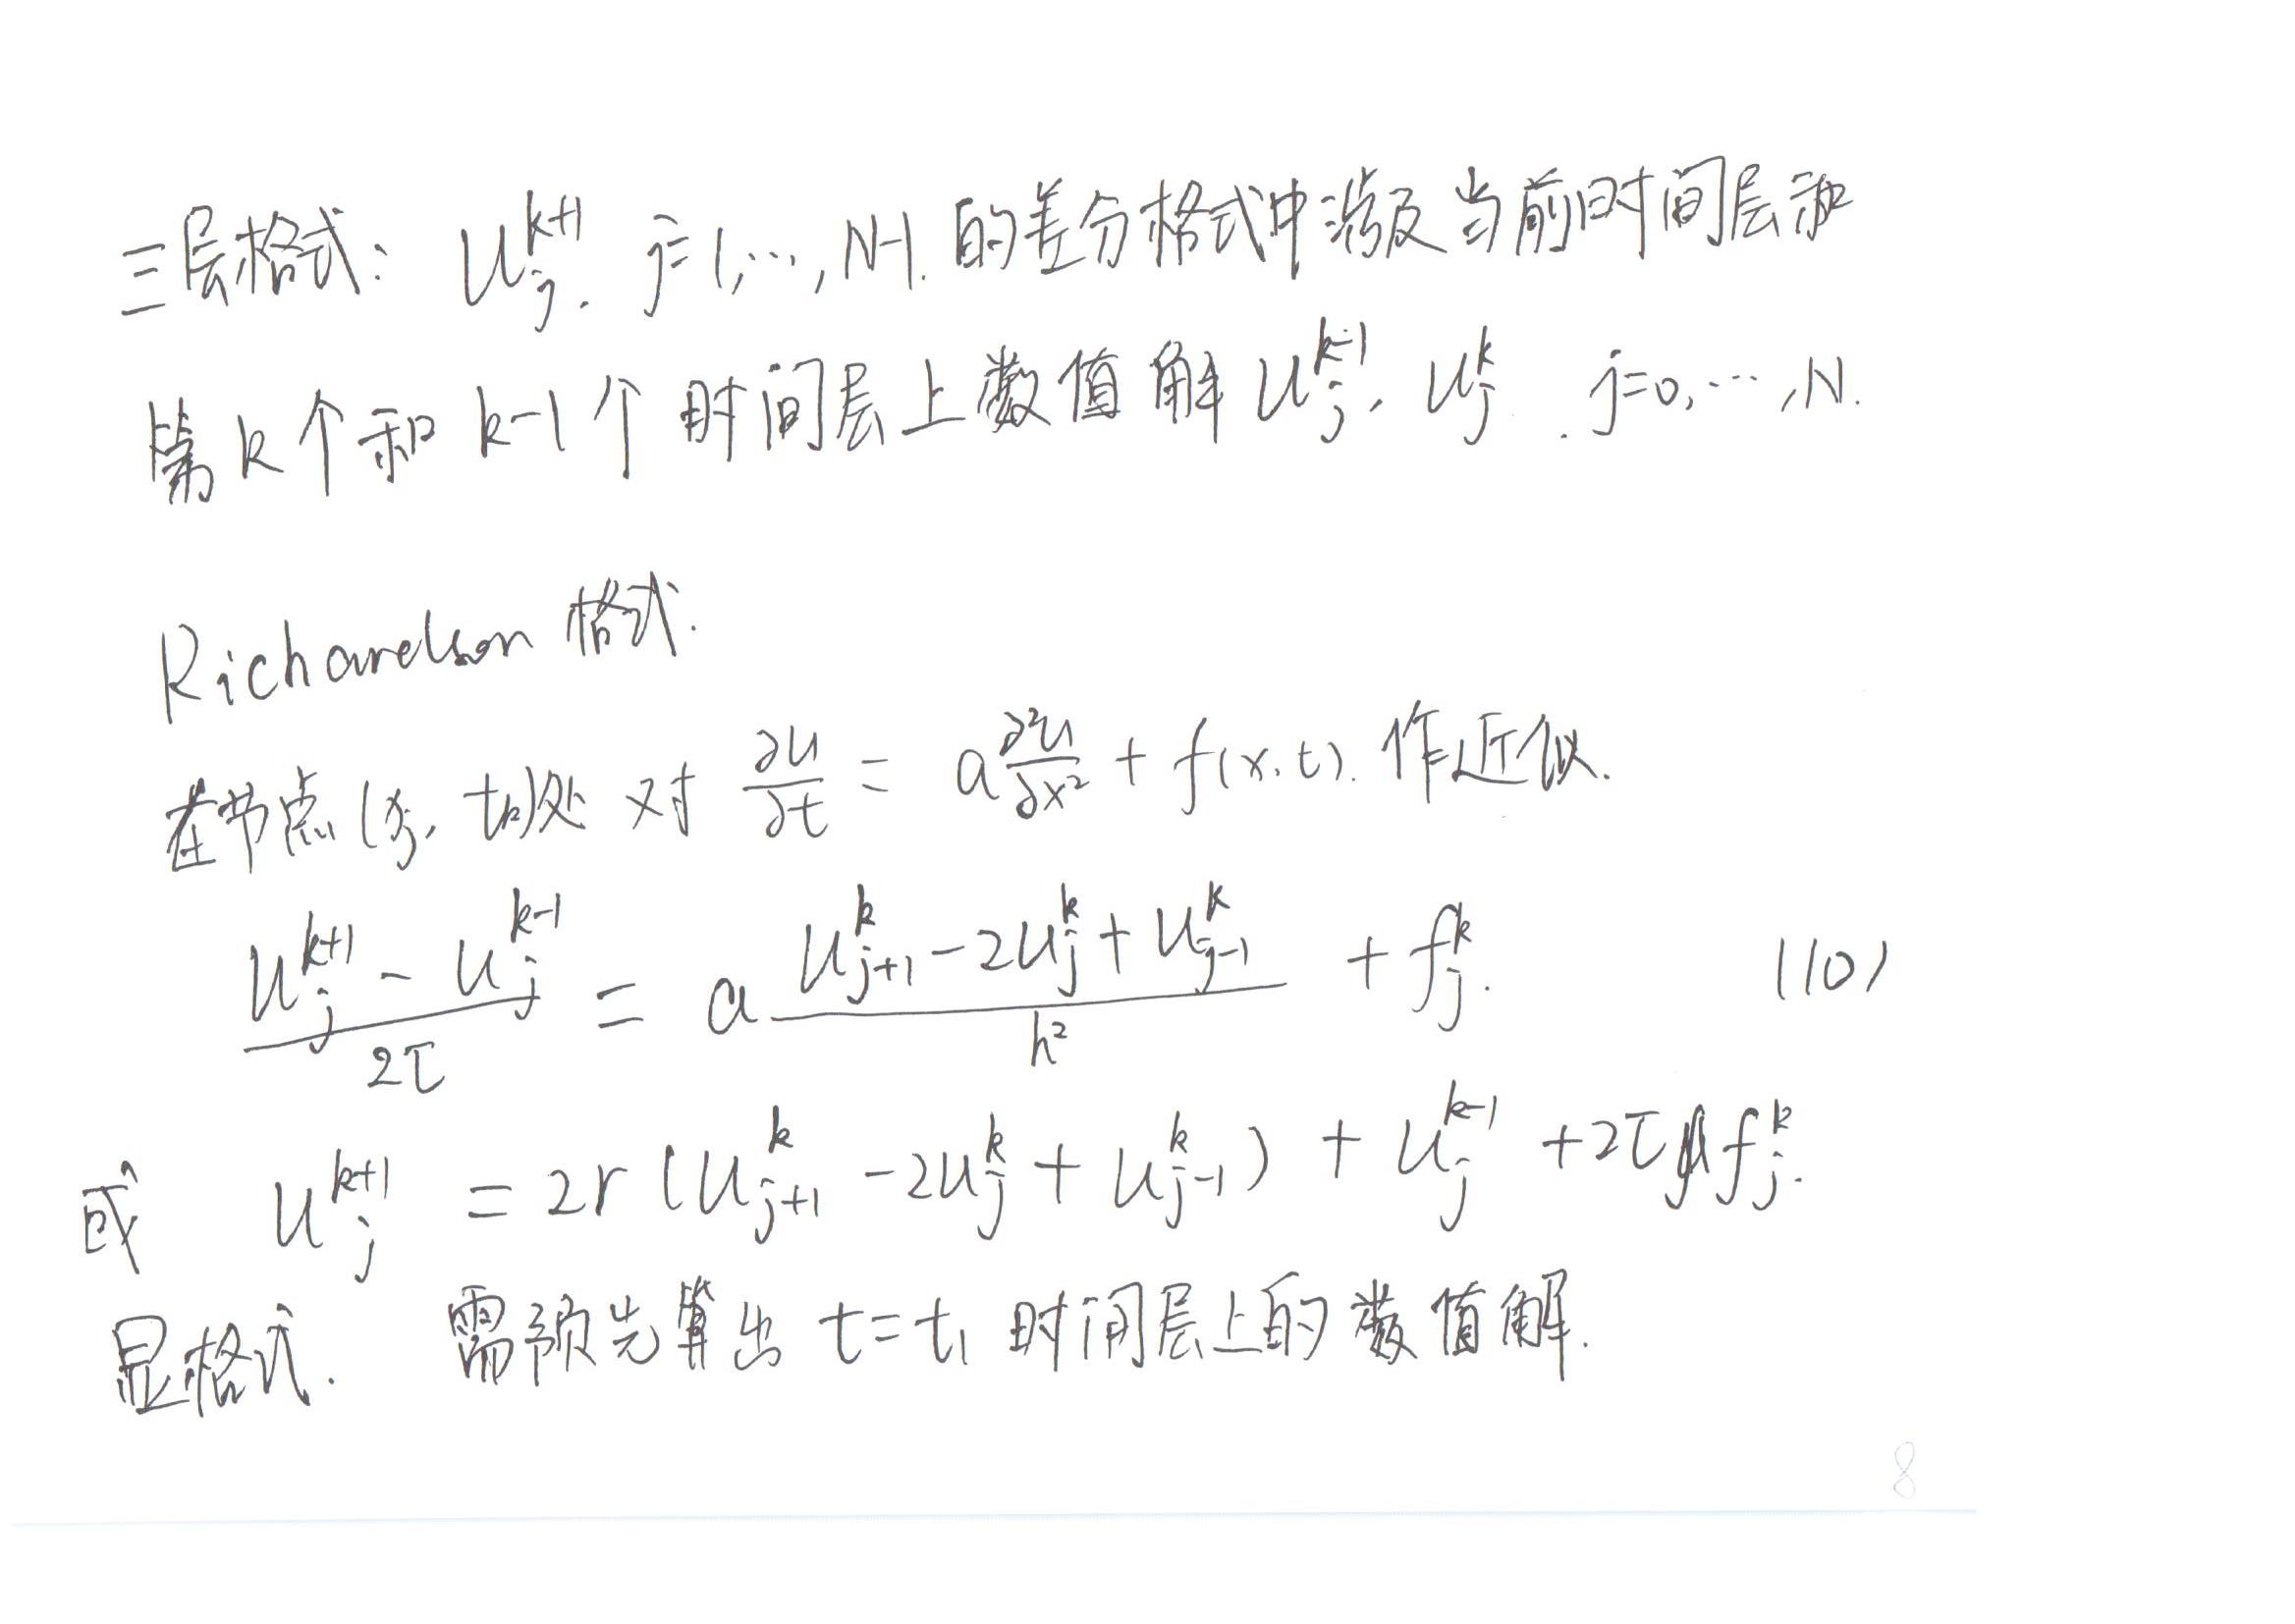 三层格式: $u_j^{k+1}$, j=1,…,N-1. 的差分格式中涉及当前时间层和
第k个和k-1个时间层上数值解 $u_j^{k-1}$, $u_j^k$. j=0,…,N.
Richardson格式.
在节点 $(x_j, t_k)$ 处对 $\frac{\partial u}{\partial t} = a\frac{\partial^2 u}{\partial x^2} + f(x,t)$. 作近似.
$\frac{u_j^{k+1} - u_j^{k-1}}{2\tau} = a\frac{u_{j+1}^k - 2u_j^k + u_{j-1}^k}{h^2} + f_j^k.$ (10)
或 $u_j^{k+1} = 2r(u_{j+1}^k - 2u_j^k + u_{j-1}^k) + u_j^{k-1} + 2\tau f_j^k.$
显格式. 需预先算出 $t=t_1$ 时间层上的数值解.
8